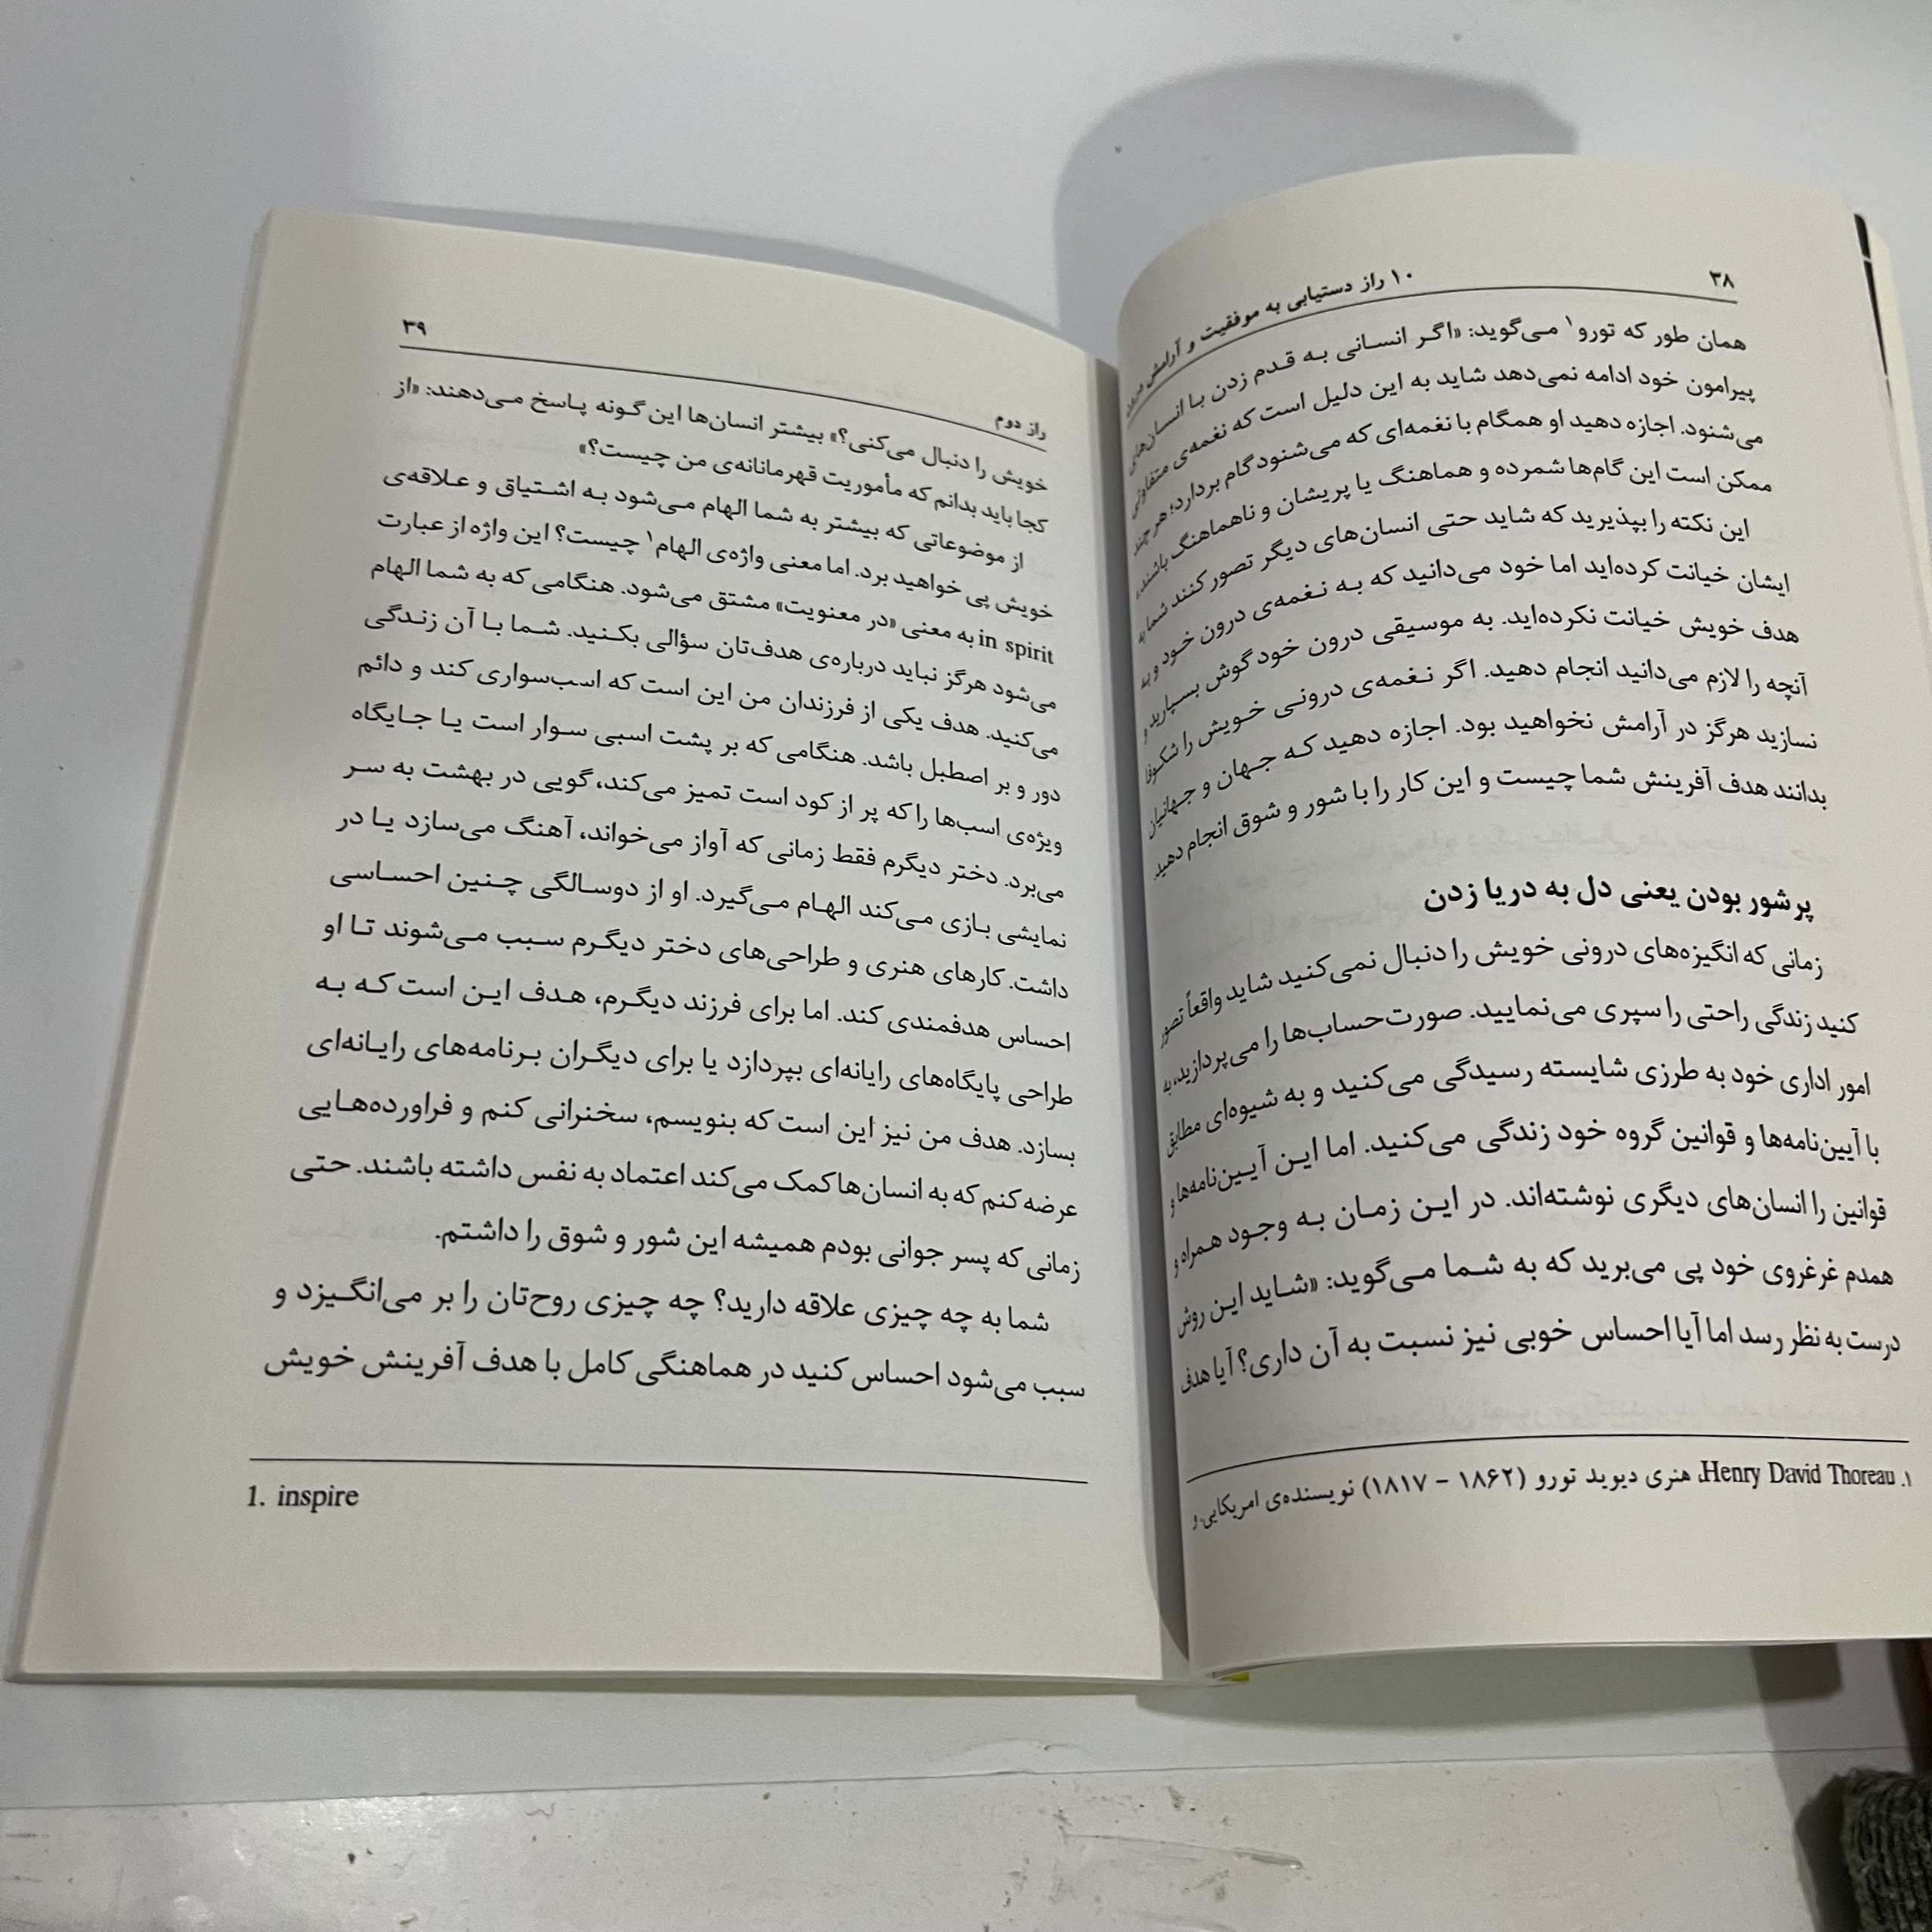 ۳۸
۱۰ راز دستیابی به موفقیت و آرامش درون
همان طور که تورو۱ می‌گوید: «اگر انسانی به قدم زدن با انسان‌های
پیرامون خود ادامه نمی‌دهد شاید به این دلیل است که نغمه‌ی متفاوتی
می‌شنود. اجازه دهید او همگام با نغمه‌ای که می‌شنود گام بردارد؛ هر چند
ممکن است این گام‌ها شمرده و هماهنگ یا پریشان و ناهماهنگ باشند.»
این نکته را بپذیرید که شاید حتی انسان‌های دیگر تصور کنند شما به
ایشان خیانت کرده‌اید اما خود می‌دانید که به نغمه‌ی درون خود و به
هدف خویش خیانت نکرده‌اید. به موسیقی درون خود گوش بسپارید و
آنچه را لازم می‌دانید انجام دهید. اگر نغمه‌ی درونی خویش را شکوفا
نسازید هرگز در آرامش نخواهید بود. اجازه دهید که جهان و جهانیان
بدانند هدف آفرینش شما چیست و این کار را با شور و شوق انجام دهید.
پرشور بودن یعنی دل به دریا زدن
زمانی که انگیزه‌های درونی خویش را دنبال نمی‌کنید شاید واقعاً تصور
کنید زندگی راحتی را سپری می‌نمایید. صورت‌حساب‌ها را می‌پردازید، به
امور اداری خود به طرزی شایسته رسیدگی می‌کنید و به شیوه‌ای مطابق
با آیین‌نامه‌ها و قوانین گروه خود زندگی می‌کنید. اما این آیین‌نامه‌ها و
قوانین را انسان‌های دیگری نوشته‌اند. در این زمان به وجود همراه و
همدم غرغروی خود پی می‌برید که به شما می‌گوید: «شاید این روش
درست به نظر رسد اما آیا احساس خوبی نیز نسبت به آن داری؟ آیا هدف
۱. Henry David Thoreau، هنری دیوید تورو (۱۸۶۲ – ۱۸۱۷) نویسنده‌ی امریکایی. و
۳۹
راز دوم
خویش را دنبال می‌کنی؟» بیشتر انسان‌ها این گونه پاسخ می‌دهند: «از
کجا باید بدانم که مأموریت قهرمانانه‌ی من چیست؟»
از موضوعاتی که بیشتر به شما الهام می‌شود به اشتیاق و علاقه‌ی
خویش پی خواهید برد. اما معنی واژه‌ی الهام۱ چیست؟ این واژه از عبارت
in spirit به معنی «در معنویت» مشتق می‌شود. هنگامی که به شما الهام
می‌شود هرگز نباید درباره‌ی هدف‌تان سؤالی بکنید. شما با آن زندگی
می‌کنید. هدف یکی از فرزندان من این است که اسب‌سواری کند و دائم
دور و بر اصطبل باشد. هنگامی که بر پشت اسبی سوار است یا جایگاه
ویژه‌ی اسب‌ها را که پر از کود است تمیز می‌کند، گویی در بهشت به سر
می‌برد. دختر دیگرم فقط زمانی که آواز می‌خواند، آهنگ می‌سازد یا در
نمایشی بازی می‌کند الهام می‌گیرد. او از دوسالگی چنین احساسی
داشت. کارهای هنری و طراحی‌های دختر دیگرم سبب می‌شوند تا او
احساس هدفمندی کند. اما برای فرزند دیگرم، هدف این است که به
طراحی پایگاه‌های رایانه‌ای بپردازد یا برای دیگران برنامه‌های رایانه‌ای
بسازد. هدف من نیز این است که بنویسم، سخنرانی کنم و فراورده‌هایی
عرضه کنم که به انسان‌ها کمک می‌کند اعتماد به نفس داشته باشند. حتی
زمانی که پسر جوانی بودم همیشه این شور و شوق را داشتم.
شما به چه چیزی علاقه دارید؟ چه چیزی روح‌تان را بر می‌انگیزد و
سبب می‌شود احساس کنید در هماهنگی کامل با هدف آفرینش خویش
1. inspire